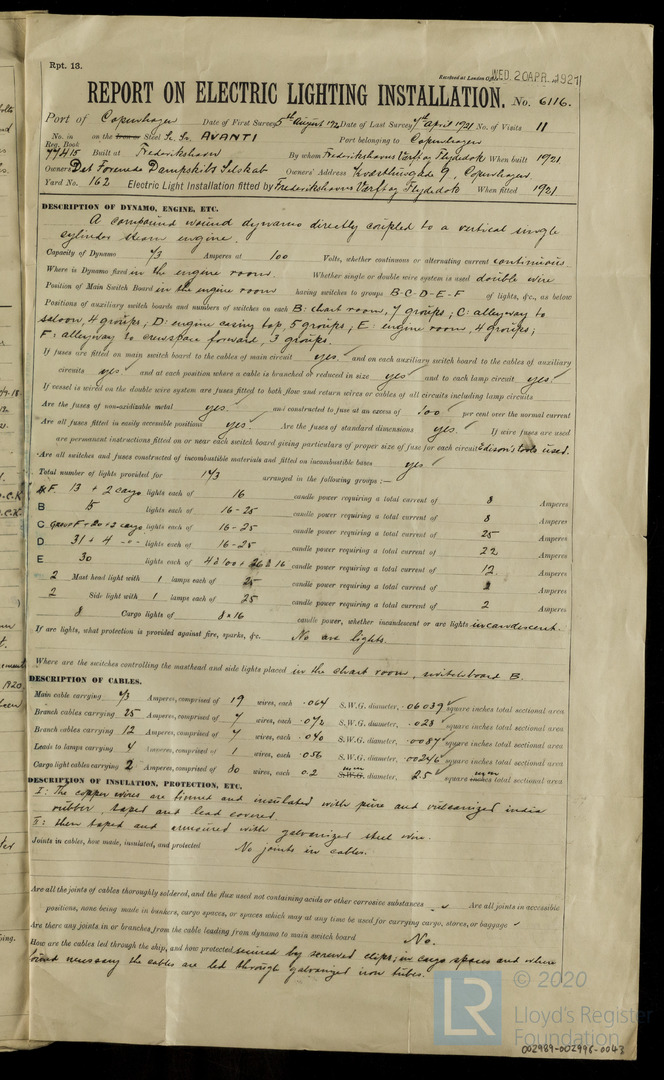 Rpt. 13.
Received at London Office WED. 20 APR. 1921
REPORT ON ELECTRIC LIGHTING INSTALLATION. No. 6116.
Port of Copenhagen Date of First Survey 5th August 1920 Date of Last Survey 7th April 1921 No. of Visits 11
No. in Reg. Book 77415 on the Iron or Steel Sc. Sr. AVANTI Port belonging to Copenhagen
Built at Frederikshavn By whom Frederikshavns Værft og Flydedok When built 1921
Owners Det Forenede Dampskibs Selskab Owners' Address Kvæsthusgade 9, Copenhagen
Yard No. 162 Electric Light Installation fitted by Frederikshavns Værft og Flydedok When fitted 1921
DESCRIPTION OF DYNAMO, ENGINE, ETC.
A compound wound dynamo directly coupled to a vertical single
cylinder steam engine.
Capacity of Dynamo 73 Amperes at 100 Volts, whether continuous or alternating current continuous.
Where is Dynamo fixed in the engine room. Whether single or double wire system is used double wire
Position of Main Switch Board in the engine room having switches to groups B-C-D-E-F of lights, &c., as below
Positions of auxiliary switch boards and numbers of switches on each B: chart room, 7 groups; C: alleyway to
saloon, 4 groups; D: engine casing top, 5 groups; E: engine room, 4 groups;
F: alleyway to crewspace forward, 3 groups.
If fuses are fitted on main switch board to the cables of main circuit yes. and on each auxiliary switch board to the cables of auxiliary
circuits yes and at each position where a cable is branched or reduced in size yes and to each lamp circuit yes.
If vessel is wired on the double wire system are fuses fitted to both flow and return wires or cables of all circuits including lamp circuits
Are the fuses of non-oxidizable metal yes and constructed to fuse at an excess of 100 per cent over the normal current
Are all fuses fitted in easily accessible positions yes Are the fuses of standard dimensions yes. If wire fuses are used
are permanent instructions fitted on or near each switch board giving particulars of proper size of fuse for each circuit Edison's tools used.
Are all switches and fuses constructed of incombustible materials and fitted on incombustible bases yes
Total number of lights provided for 143 arranged in the following groups :—
F. 13 + 2 cargo lights each of 16 candle power requiring a total current of 8 Amperes
B 15 lights each of 16-25 candle power requiring a total current of 8 Amperes
C 20 + 2 cargo lights each of 16-25 candle power requiring a total current of 25 Amperes
D 31 + 4 -"- lights each of 16-25 candle power requiring a total current of 22 Amperes
E 30 lights each of 4 à 100 + 26 à 16 candle power requiring a total current of 12 Amperes
2 Mast head light with 1 lamps each of 25 candle power requiring a total current of 2 Amperes
2 Side light with 1 lamps each of 25 candle power requiring a total current of 2 Amperes
8 Cargo lights of 8 x 16 candle power, whether incandescent or arc lights incandescent.
If arc lights, what protection is provided against fire, sparks, &c. No arc lights.
Where are the switches controlling the masthead and side lights placed in the chart room, switchboard B.
DESCRIPTION OF CABLES.
Main cable carrying 73 Amperes, comprised of 19 wires, each .064 S.W.G. diameter, .06039 square inches total sectional area
Branch cables carrying 25 Amperes, comprised of 7 wires, each .072 S.W.G. diameter, .028 square inches total sectional area
Branch cables carrying 12 Amperes, comprised of 7 wires, each .040 S.W.G. diameter, .0087 square inches total sectional area
Leads to lamps carrying 4 Amperes, comprised of 1 wires, each .056 S.W.G. diameter, .00246 square inches total sectional area
Cargo light cables carrying 2 Amperes, comprised of 80 wires, each 0.2 mm S.W.G. diameter, 2.5 square inches mm total sectional area
DESCRIPTION OF INSULATION, PROTECTION, ETC.
I: The copper wires are tinned and insulated with pure and vulcanized india
rubber, taped and lead covered.
II: then taped and armoured with galvanized steel wire.
Joints in cables, how made, insulated, and protected No joints in cables.
Are all the joints of cables thoroughly soldered, and the flux used not containing acids or other corrosive substances Are all joints in accessible
positions, none being made in bunkers, cargo spaces, or spaces which may at any time be used for carrying cargo, stores, or baggage
Are there any joints in or branches from the cable leading from dynamo to main switch board No.
How are the cables led through the ship, and how protected secured by screwed clips; in cargo spaces and where
found necessary the cables are led through galvanized iron tubes.
© 2020
LR
Lloyd's Register
Foundation
002989-002998-0043